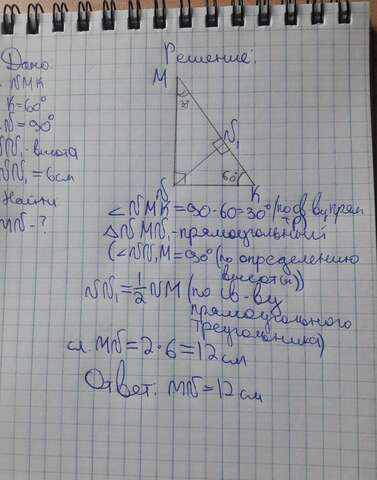 Дано:
Решение:
NMK
K=60°
N=90°
NN₁-высота
NN₁=6см
Найти
MN-?
M
N₁
60°
N
K
∠NMK=90-60=30° (по св ву прям тр)
△NMN₁-прямоугольный
(∠NN₁M=90° (по определению
высоты))
NN₁=½NM (по св-ву
прямоугольного
треугольника)
сл. MN=2·6=12см
Ответ: MN=12см